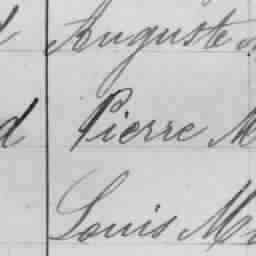 Auguste
d Pierre M
Louis M